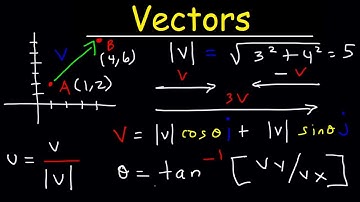 Vectors
V
B
(4,6)
A(1,2)
|v| = √3²+4² = 5
V
-V
3V
V = |v| cosθ j + |v| sinθ j
u = v/|v|
θ = tan⁻¹ [Vy/Vx]